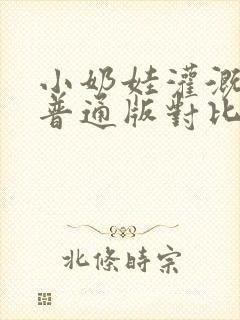 小奶娃灌溉
普通版對比
北條時宗